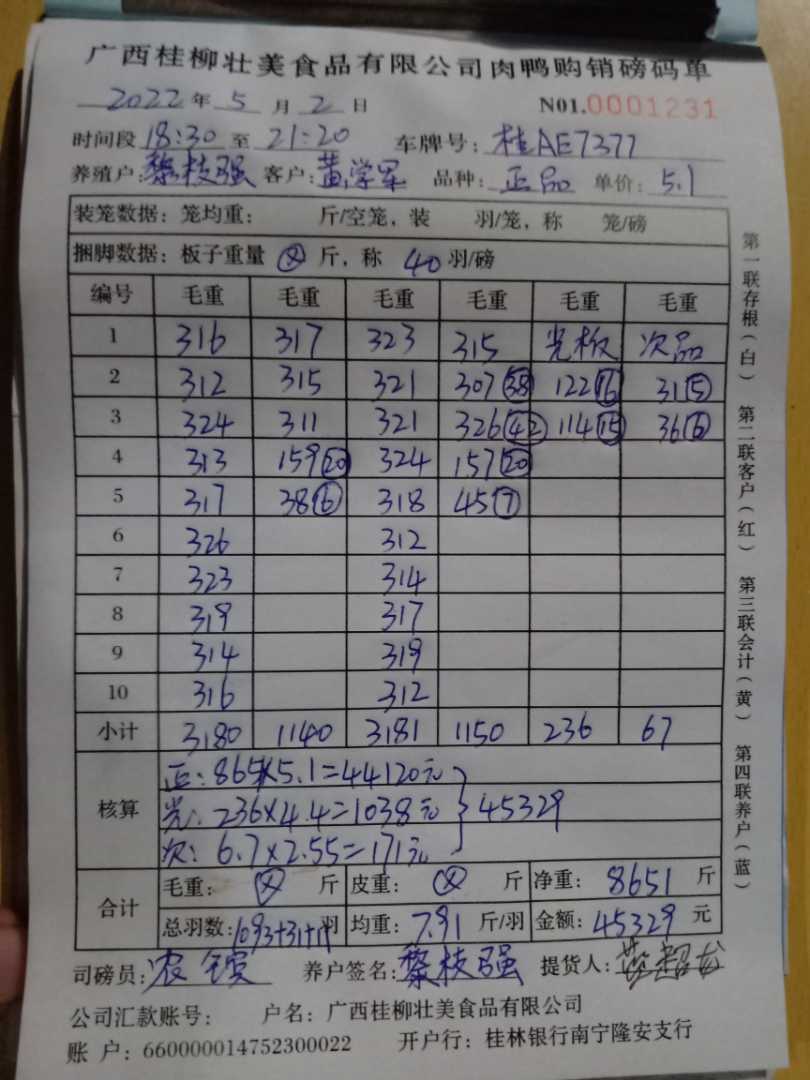 广西桂柳壮美食品有限公司肉鸭购销磅码单
2022年5月2日 N01.0001231
时间段18:30至21:20 车牌号：桂AE7377
养殖户：黎枝强 客户：黄学军 品种：正品 单价：5.1
装笼数据：笼均重： 斤/空笼，装 羽/笼，称 笼/磅
捆脚数据：板子重量 斤，称 40羽/磅
编号 毛重 毛重 毛重 毛重 毛重 毛重
1 316 317 323 315 光板 次品
2 312 315 321 307(38) 122(16) 31(5)
3 324 311 321 326(42) 114(15) 36(6)
4 313 159(20) 324 157(20)
5 317 38(6) 318 45(7)
6 326 312
7 323 314
8 319 317
9 314 319
10 316 312
小计 3180 1140 3181 1150 236 67
核算 正：8651×5.1=44120元
光：236×4.4=1038元 45329
次：6.7×2.55=171元
合计 毛重： 斤 皮重： 斤 净重：8651斤
总羽数：1093+31+11羽 均重：7.91斤/羽 金额：45329元
司磅员：农 养户签名：黎枝强 提货人：
公司汇款账号： 户名：广西桂柳壮美食品有限公司
账 户：660000014752300022 开户行：桂林银行南宁隆安支行
第一联存根（白） 第二联客户（红） 第三联会计（黄） 第四联养户（蓝）